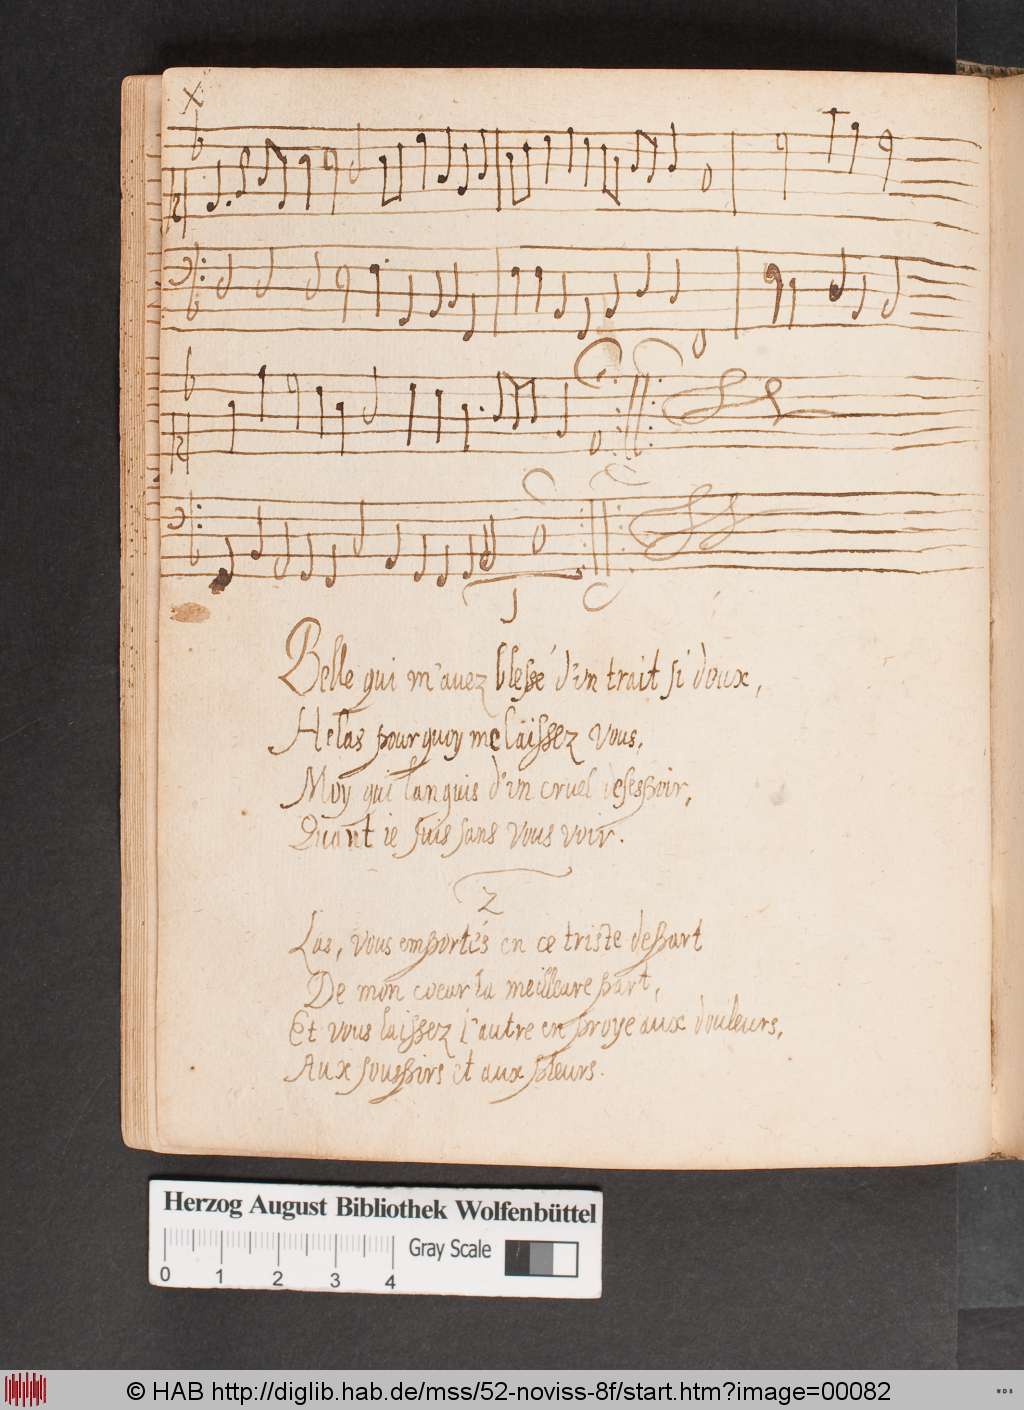 X
1
Belle qui m'auez blessé d'un trait si doux,
Helas pourquoy me laissez vous,
Moy qui languis d'un cruel desespoir,
Quant ie suis sans vous voir.
2
Las, vous emportés en ce triste depart
De mon coeur la meilleure part,
Et vous laissez l'autre en proye aux douleurs,
Aux souspirs et aux pleurs.
Herzog August Bibliothek Wolfenbüttel
Gray Scale
0 1 2 3 4
© HAB http://diglib.hab.de/mss/52-noviss-8f/start.htm?image=00082